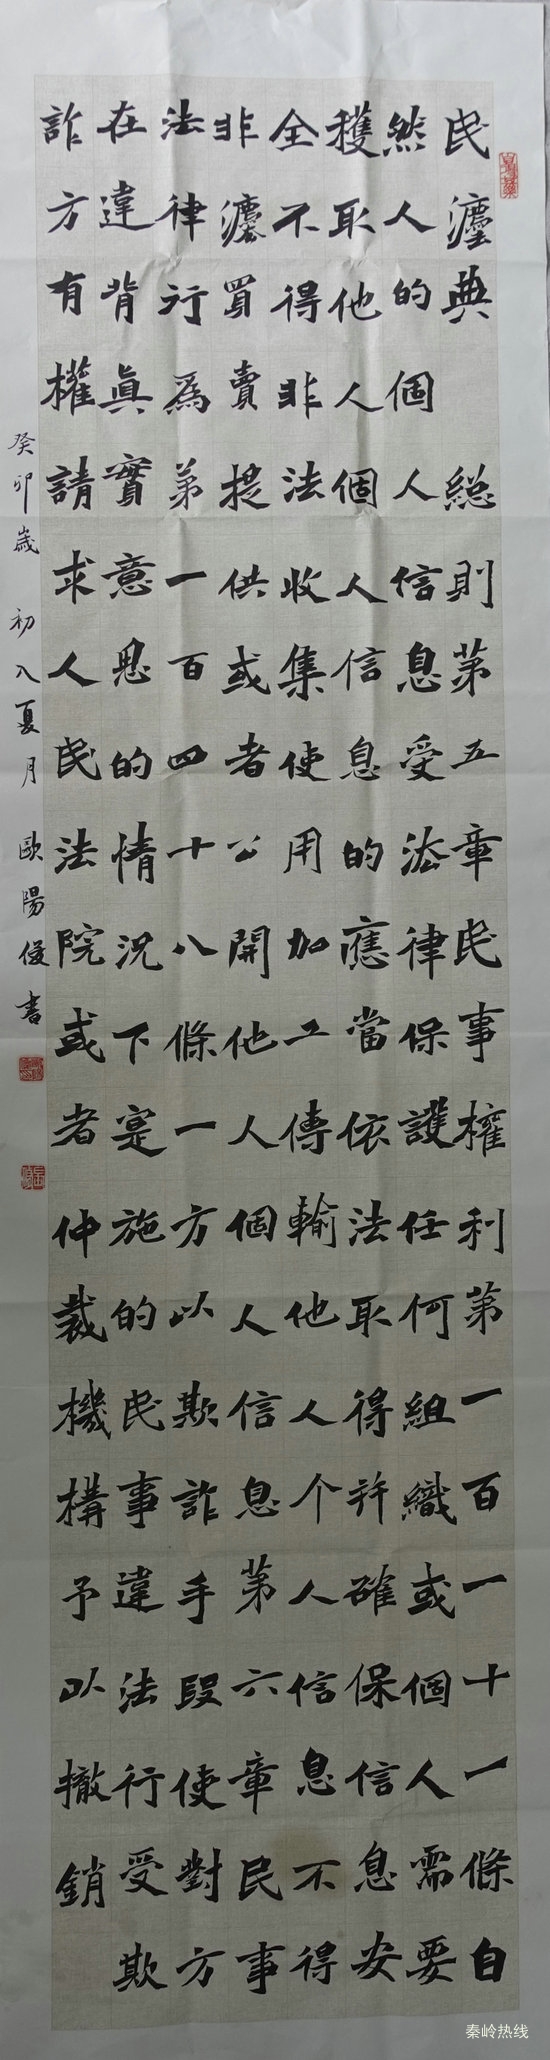 民灋典 總則第五章民事權利第一百一十一條自
然人的個人信息受法律保護任何組織或個人需要
穫取他人個人信息的應當依法取得并確保信息安
全不得非法收集使用加工傳輸他人个人信息不得
非灋買賣提供或者公開他人個人信息第六章民事
法律行為第一百四十八條一方以欺詐手段使對方
在違背真實意思的情況下寔施的民事違法行受欺
詐方有權請求人民法院或者仲裁機構予以轍銷
癸卯歲 初入夏月 歐陽俊書
秦岭热线